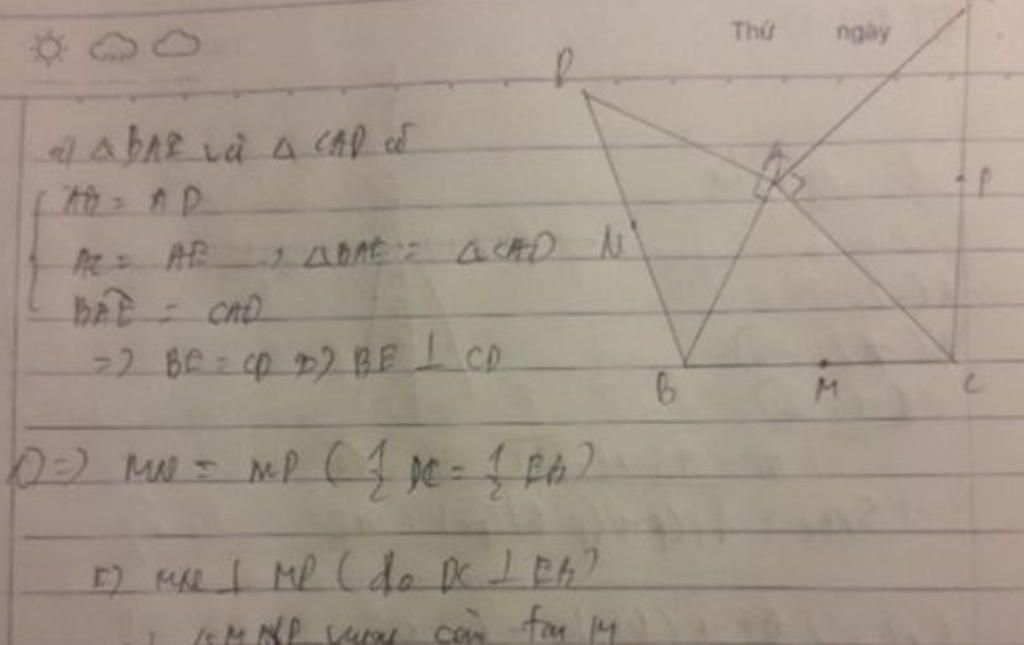 Thứ ngày
D
A
N
P
B
M
C
a) △BAE và △CAD có
AB = AD
AC = AE => △BAE = △CAD
BAE = CAD
=> BE = CD => BE ⊥ CD
=> MN = MP (1/2 DC = 1/2 EB)
=> MN ⊥ MP (do DC ⊥ EB)
△MNP vuông cân tại M